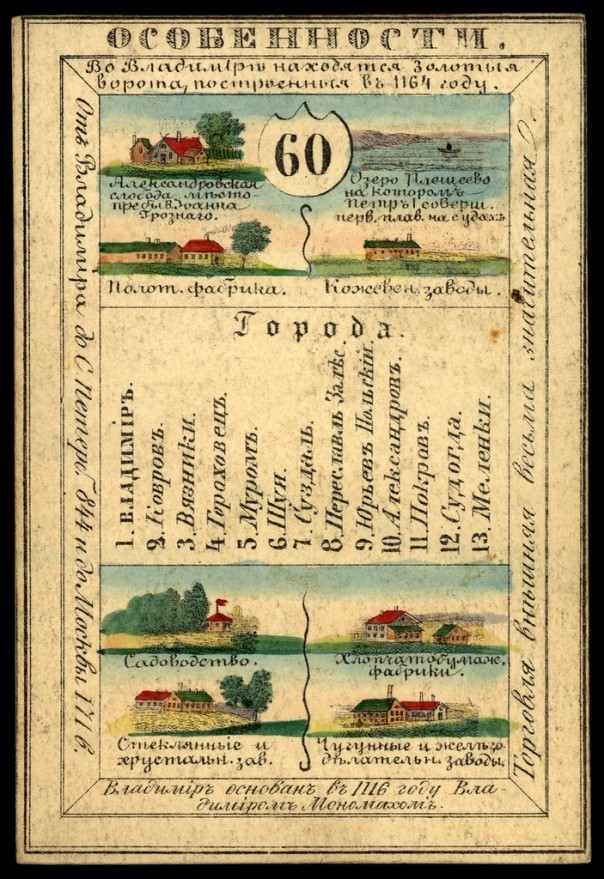 ОСОБЕННОСТИ.
Во Владимірѣ находятся Золотыя
ворота, построенныя въ 1164 году.
Отъ Владиміра до С Петерб. 844 и до Москвы 171 в.
60
Александровская
слобода, мѣсто-
пребыв. Іоанна
Грознаго.
Озеро Плещеево
на которомъ
Петръ I соверш.
перв. плав. на судахъ
Полот. фабрика.
Кожевен. заводы.
Города.
1. ВЛАДИМІРЪ.
2. Ковровъ.
3. Вязники.
4. Гороховецъ.
5. Муромъ.
6. Шуя.
7. Суздаль.
8. Переславль Залѣс.
9. Юрьевъ Польскій.
10. Александровъ.
11. Покровъ.
12. Судогда.
13. Меленки.
Садоводство.
Хлопчатобумаж.
фабрики.
Стеклянные и
хрустальн. зав.
Чугунные и желѣзо-
дѣлательн. заводы
Торговля внѣшняя весьма значительная
Владиміръ основанъ въ 1116 году Вла-
диміромъ Мономахомъ.